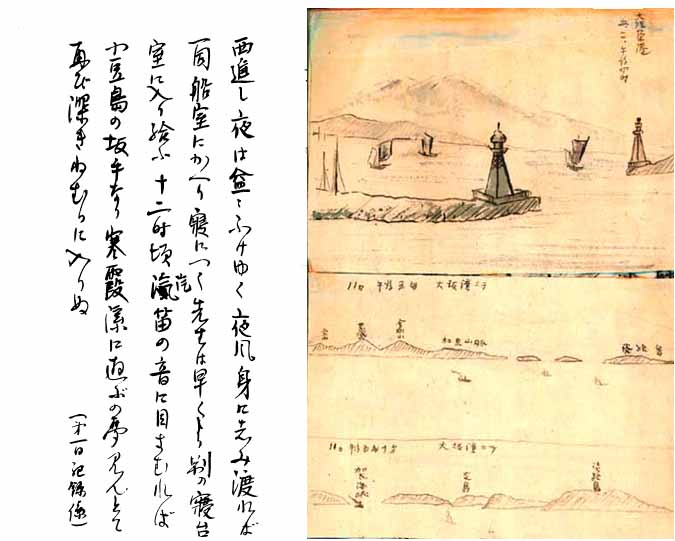 西進し夜は益々ふけゆく夜風身に志み渡れば
一同船室にかへり寝につく先生は早くより別の寝台
室に入り給ふ十二時頃汽笛の音に目さむれば
小豆島の坂手なり寒霞渓に遊ぶの夢見んとて
再び深きねむりに入りぬ
(第一日記録係)
大阪
午后
11日 午后五時 大坂湾ニテ
金剛山
紀泉山脈
友ヶ島
11日 大坂湾ニテ
加太海峡
友島
淡路島